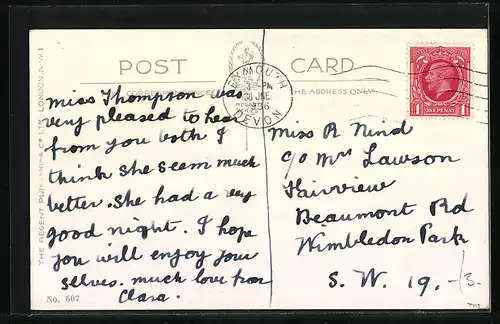 POST CARD
CORRESPONDENCE
THE ADDRESS ONLY
PLYMOUTH
JNE
1936
DEVON
ONE PENNY
1
Miss Thompson was
very pleased to hear
from you both I
think she seem much
better. She had a very
good night. I hope
you will enjoy your
selves. much love from
Clara.
Miss A Nind
c/o Mrs Lawson
Fairview
Beaumont Rd
Wimbledon Park
S. W. 19.
THE REGENT PUBLISHING Co LTD, LONDON, N.W.1
No. 607